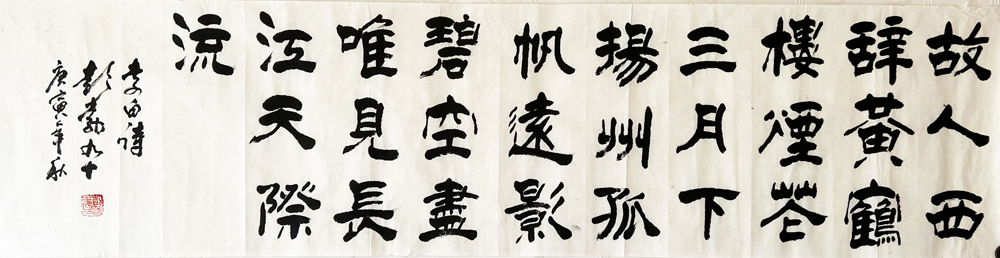 故人西
辭黃鶴
樓煙花
三月下
揚州孤
帆遠影
碧空盡
唯見長
江天際
流
李白詩
彭勃九十
庚寅年秋